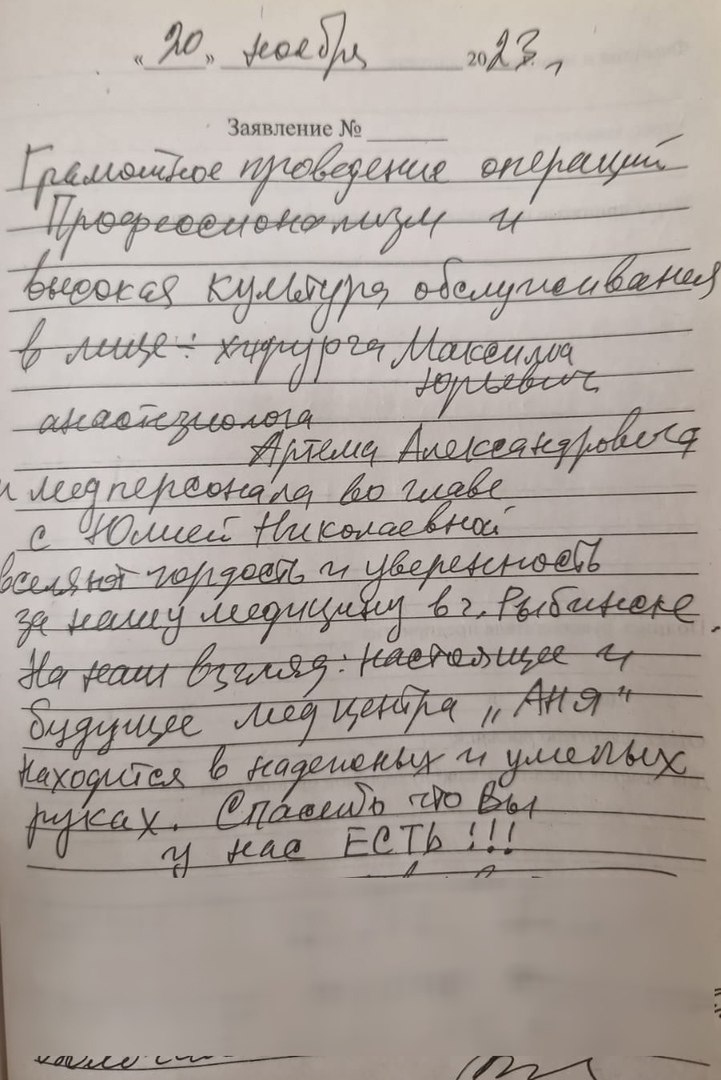 « 20 » ноября 2023 г.
Заявление №
Грамотное проведение операций
Профессионализм и
высокая культура обслуживания
в лице: хирурга Максима
Юрьевич
анастезиолога
Артема Александровича
и медперсонала во главе
с Юлией Николаевной
вселяют гордость и уверенность
за нашу медицину в г. Рыбинске.
На наш взгляд: настоящее и
будущее мед центра „Аня"
находится в надежных и умелых
руках. Спасибо что Вы
у нас ЕСТЬ!!!